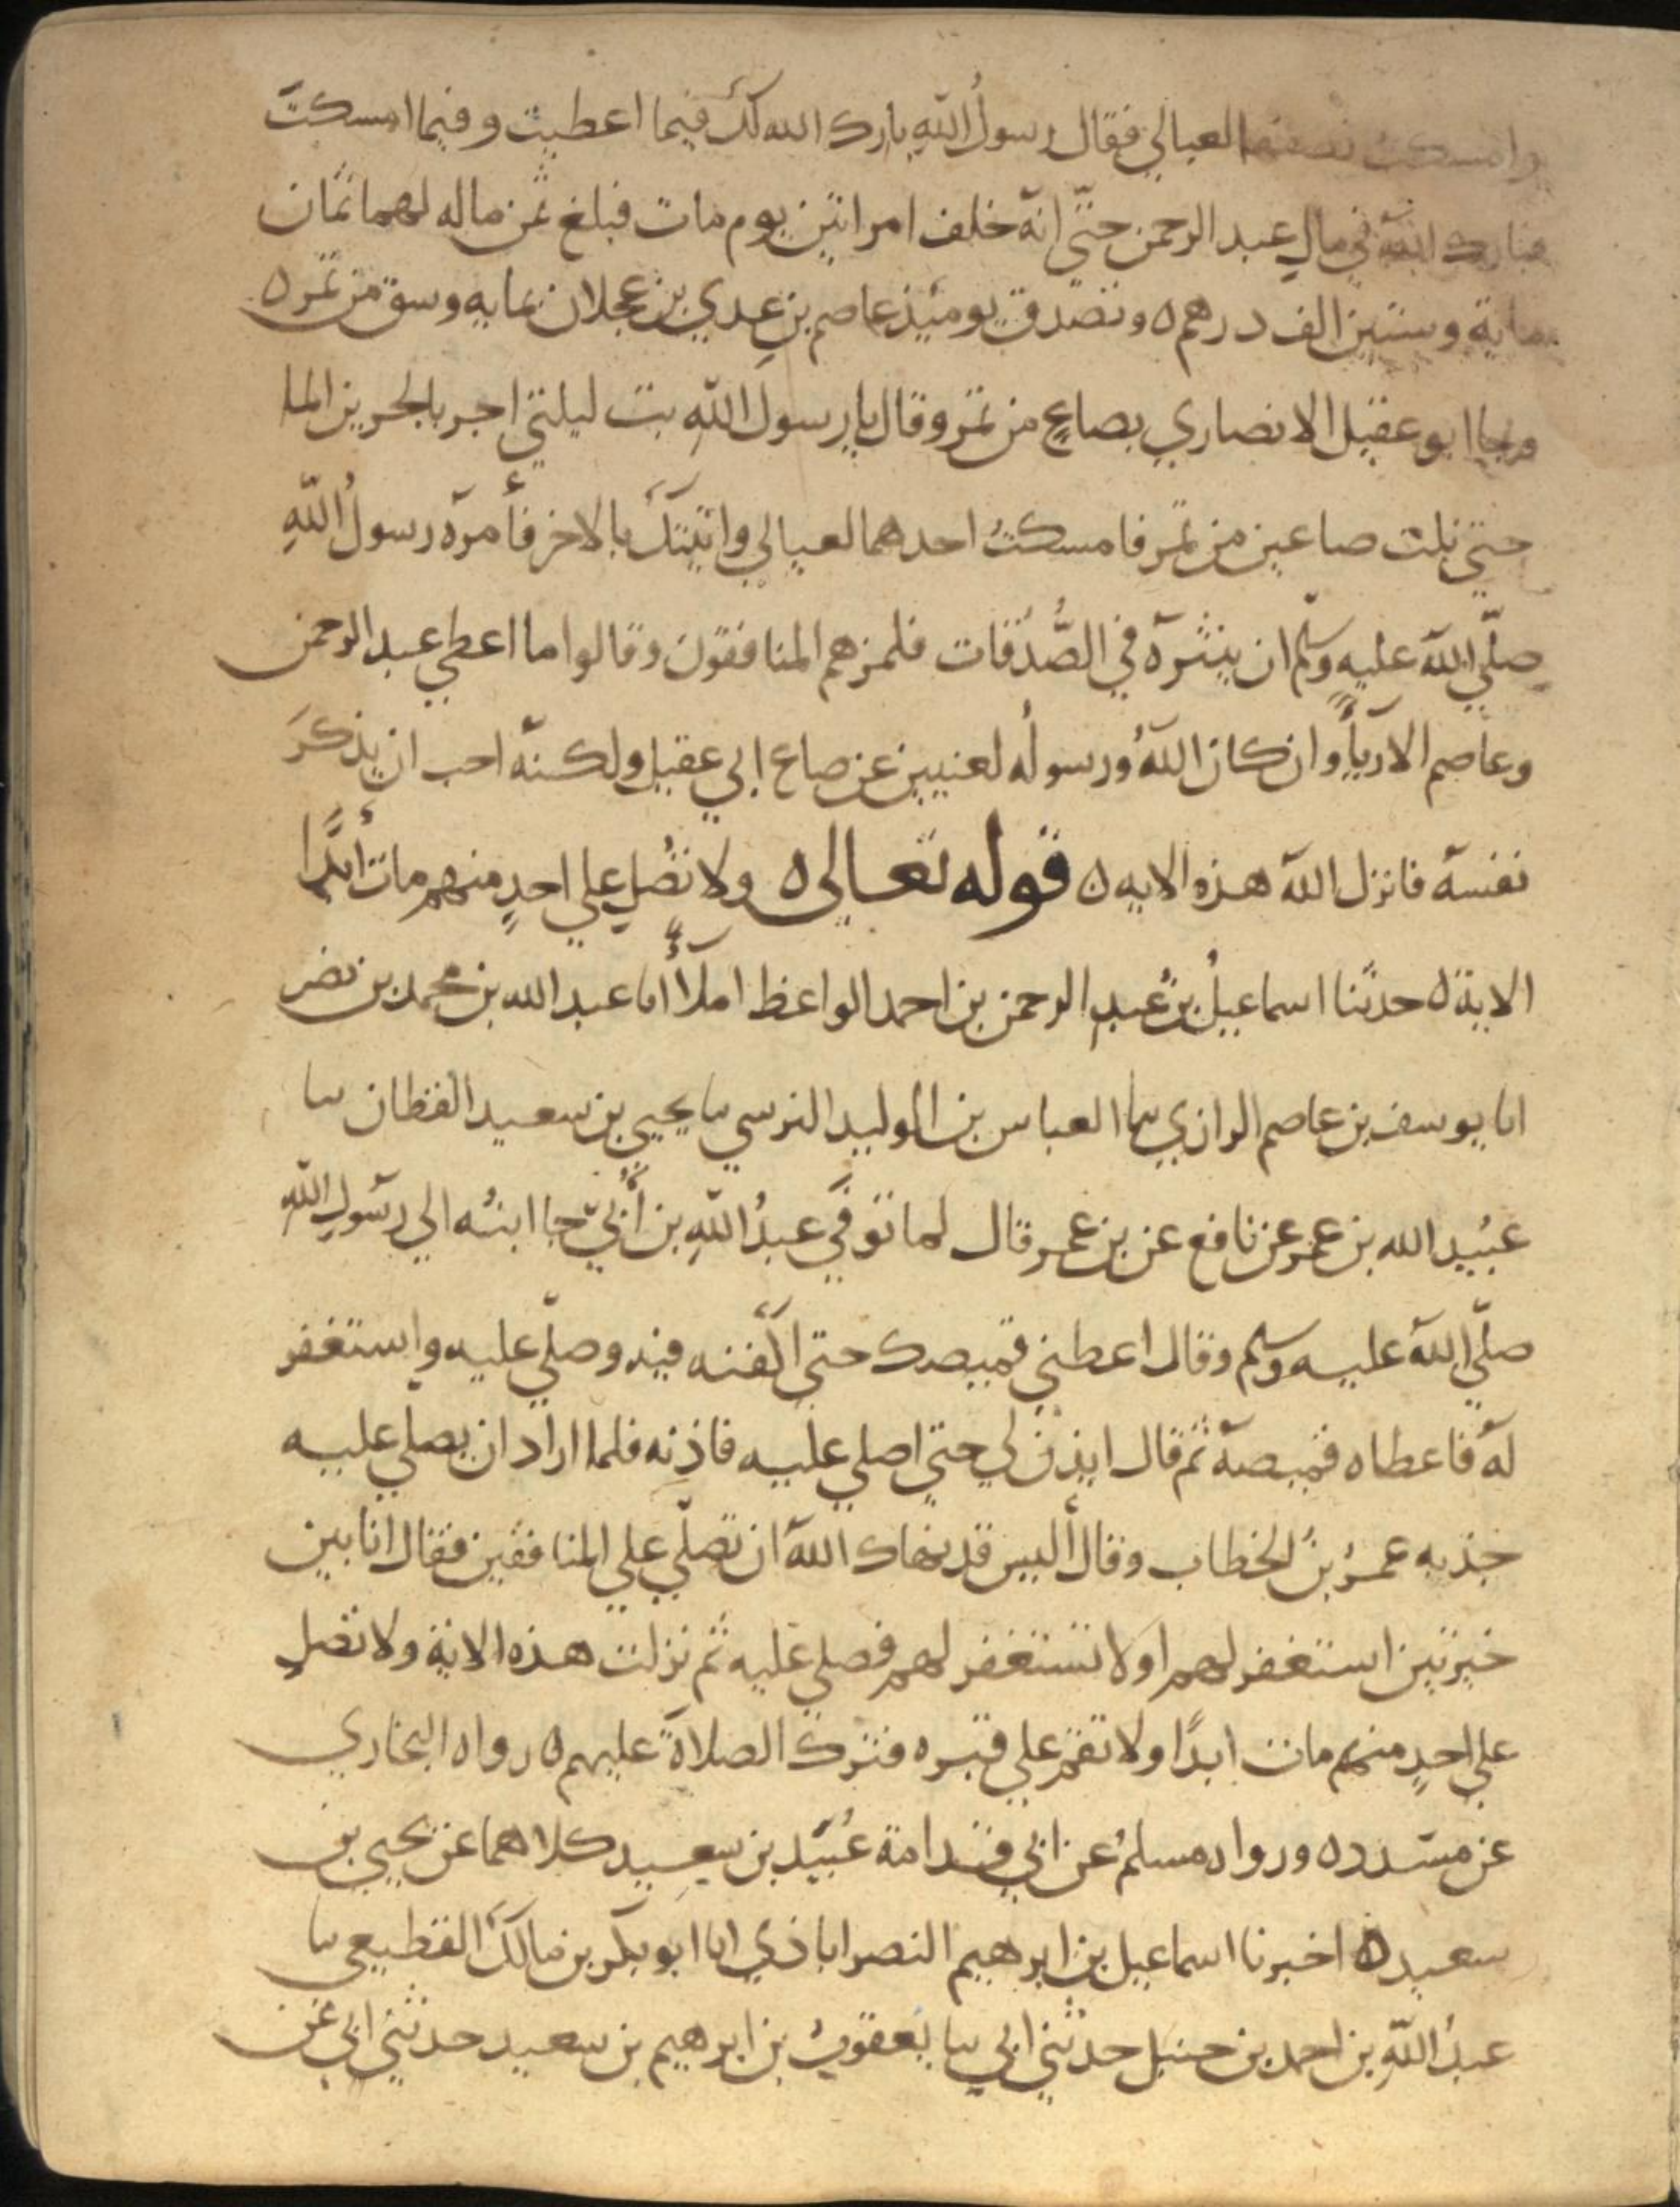 وامسكت نصفها لعيالي فقال رسولُ اللهِ بارك الله لك فيما اعطيت وفيما امسكت
فبارك الله في مالِ عبد الرحمن حتّي انه خلف امراتين يوم مات فبلغ ثمن ماله لهما ثمان
ماية وستين الف درهم ٥ وتصدق يوميذ عاصم بن عدي بن عجلان بمايه وسق من تمر ٥
وجا ابو عقيل الانصاري بصاعٍ من تمر وقال يا رسول اللهِ بت ليلتي اجر بالجرير الما
حتي نلت صاعين من تمر فامسكتُ احدهما لعيالي واتيتك بالاخر فأمره رسولُ اللهِ
صلّي الله عليه وسلم ان ينثره في الصُّدقات فلمزهم المنافقون وقالوا ما اعطي عبد الرحمن
وعاصم الا رياًء وان كان اللهُ ورسولُه لغنيين عن صاع ابي عقيل ولكنه احب ان يذكرَ
نفسه فانزل الله هذه الايه ٥ قوله تعالى ٥ ولا تُصلِ علي احدٍ منهم مات أبدًا
الاية ٥ حدثنا اسماعيلُ بنُ عبدِ الرحمن بن احمد الواعظ املاًءً انا عبد الله بن محمد بن نصر
انا يوسف بن عاصم الرازي ىا العباس بن الوليد النرسي ىا يحيي بن سعيد القطان ىا
عُبيد الله بن عمر عن نافع عن بن عمر قال لما توفّي عبدُ اللهِ بن أُبيّ جا ابنُه الي رسولِ اللهِ
صلّي الله عليه وسلم وقال اعطني قميصك حتي اكفنه فيه وصلّي عليه واستغفر
له فاعطاه قميصه ثم قال ايذن لي حتي اصلي عليه فاذنه فلما اراد ان يصلي عليه
جذبه عمرُ بنُ الخطاب وقال أليس قد نهاك الله ان تصلّي علي المنافقين فقال انا بين
خيرتين استغفر لهم او لا تستغفر لهم فصلي عليه ثم نزلت هذه الاية ولا تصلِ
علي احدٍ منهم مات ابدًا ولا تقم علي قبره فترك الصلاةَ عليهم ٥ رواه البخاري
عن مسدد ٥ ورواه مسلمُ عن ابي قدامة عُبَيد بن سعيد كلاهما عن يحيي بن
سعيد ٥ اخبرنا اسماعيل بن ابرهيم النصراباذي انا ابو بكر بن مالك القطيعي ىا
عبدُ اللهِ بن احمد بن حنبل حدثني ابي ىا يعقوبُ بن ابرهيم بن سعيد حدثني ابي عن